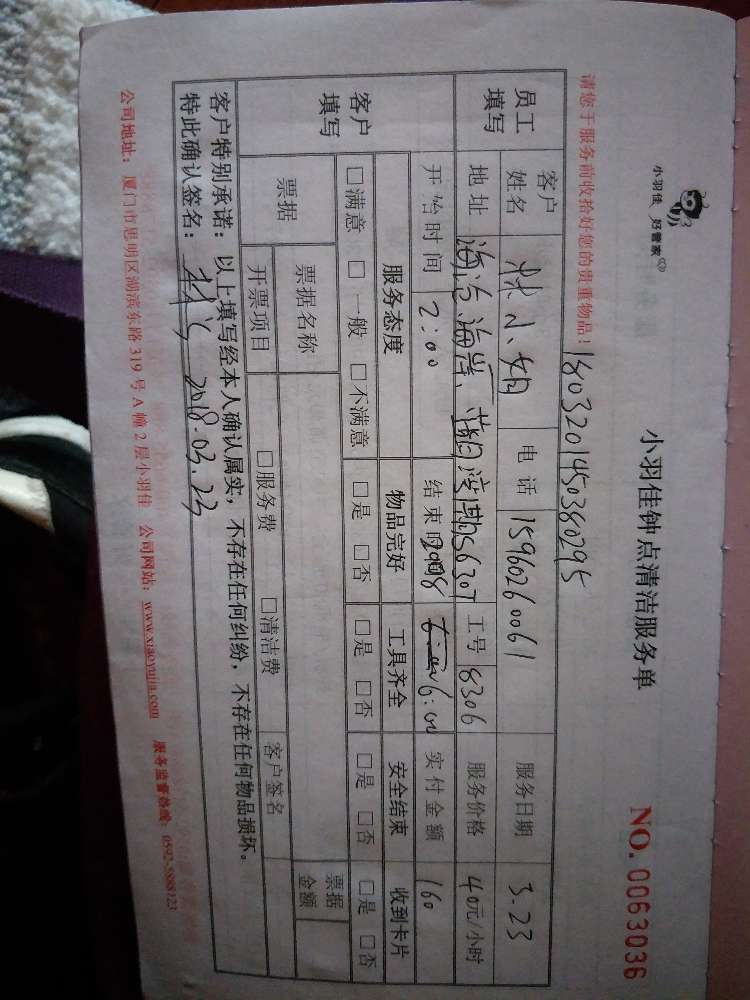 小羽佳 好管家
小羽佳钟点清洁服务单
NO. 0063036
请您于服务前收拾好您的贵重物品!
1803201450380295
员工填写
客户姓名 林小姐 电话 15960260061 服务日期 3.23
地址 海沧海岸 工号 8306 服务价格 40元/小时
开始时间 2:00 结束时 实付金额 160
客户填写
服务态度 物品完好 工具齐全 安全结束 收到卡片
□满意 □一般 □不满意 □是 □否 □是 □否 □是 □否 □是 □否
票据 票据名称 票据金额
开票项目 □服务费 □清洁费 客户签名
客户特别承诺:以上填写经本人确认属实,不存在任何纠纷,不存在任何物品损坏。
特此确认签名: 2018.03.23
公司地址:厦门市思明区湖滨东路 319 号 A 幢 2 层小羽佳 公司网站:www.xiaoyujia.com 服务监督热线:0592-5888123